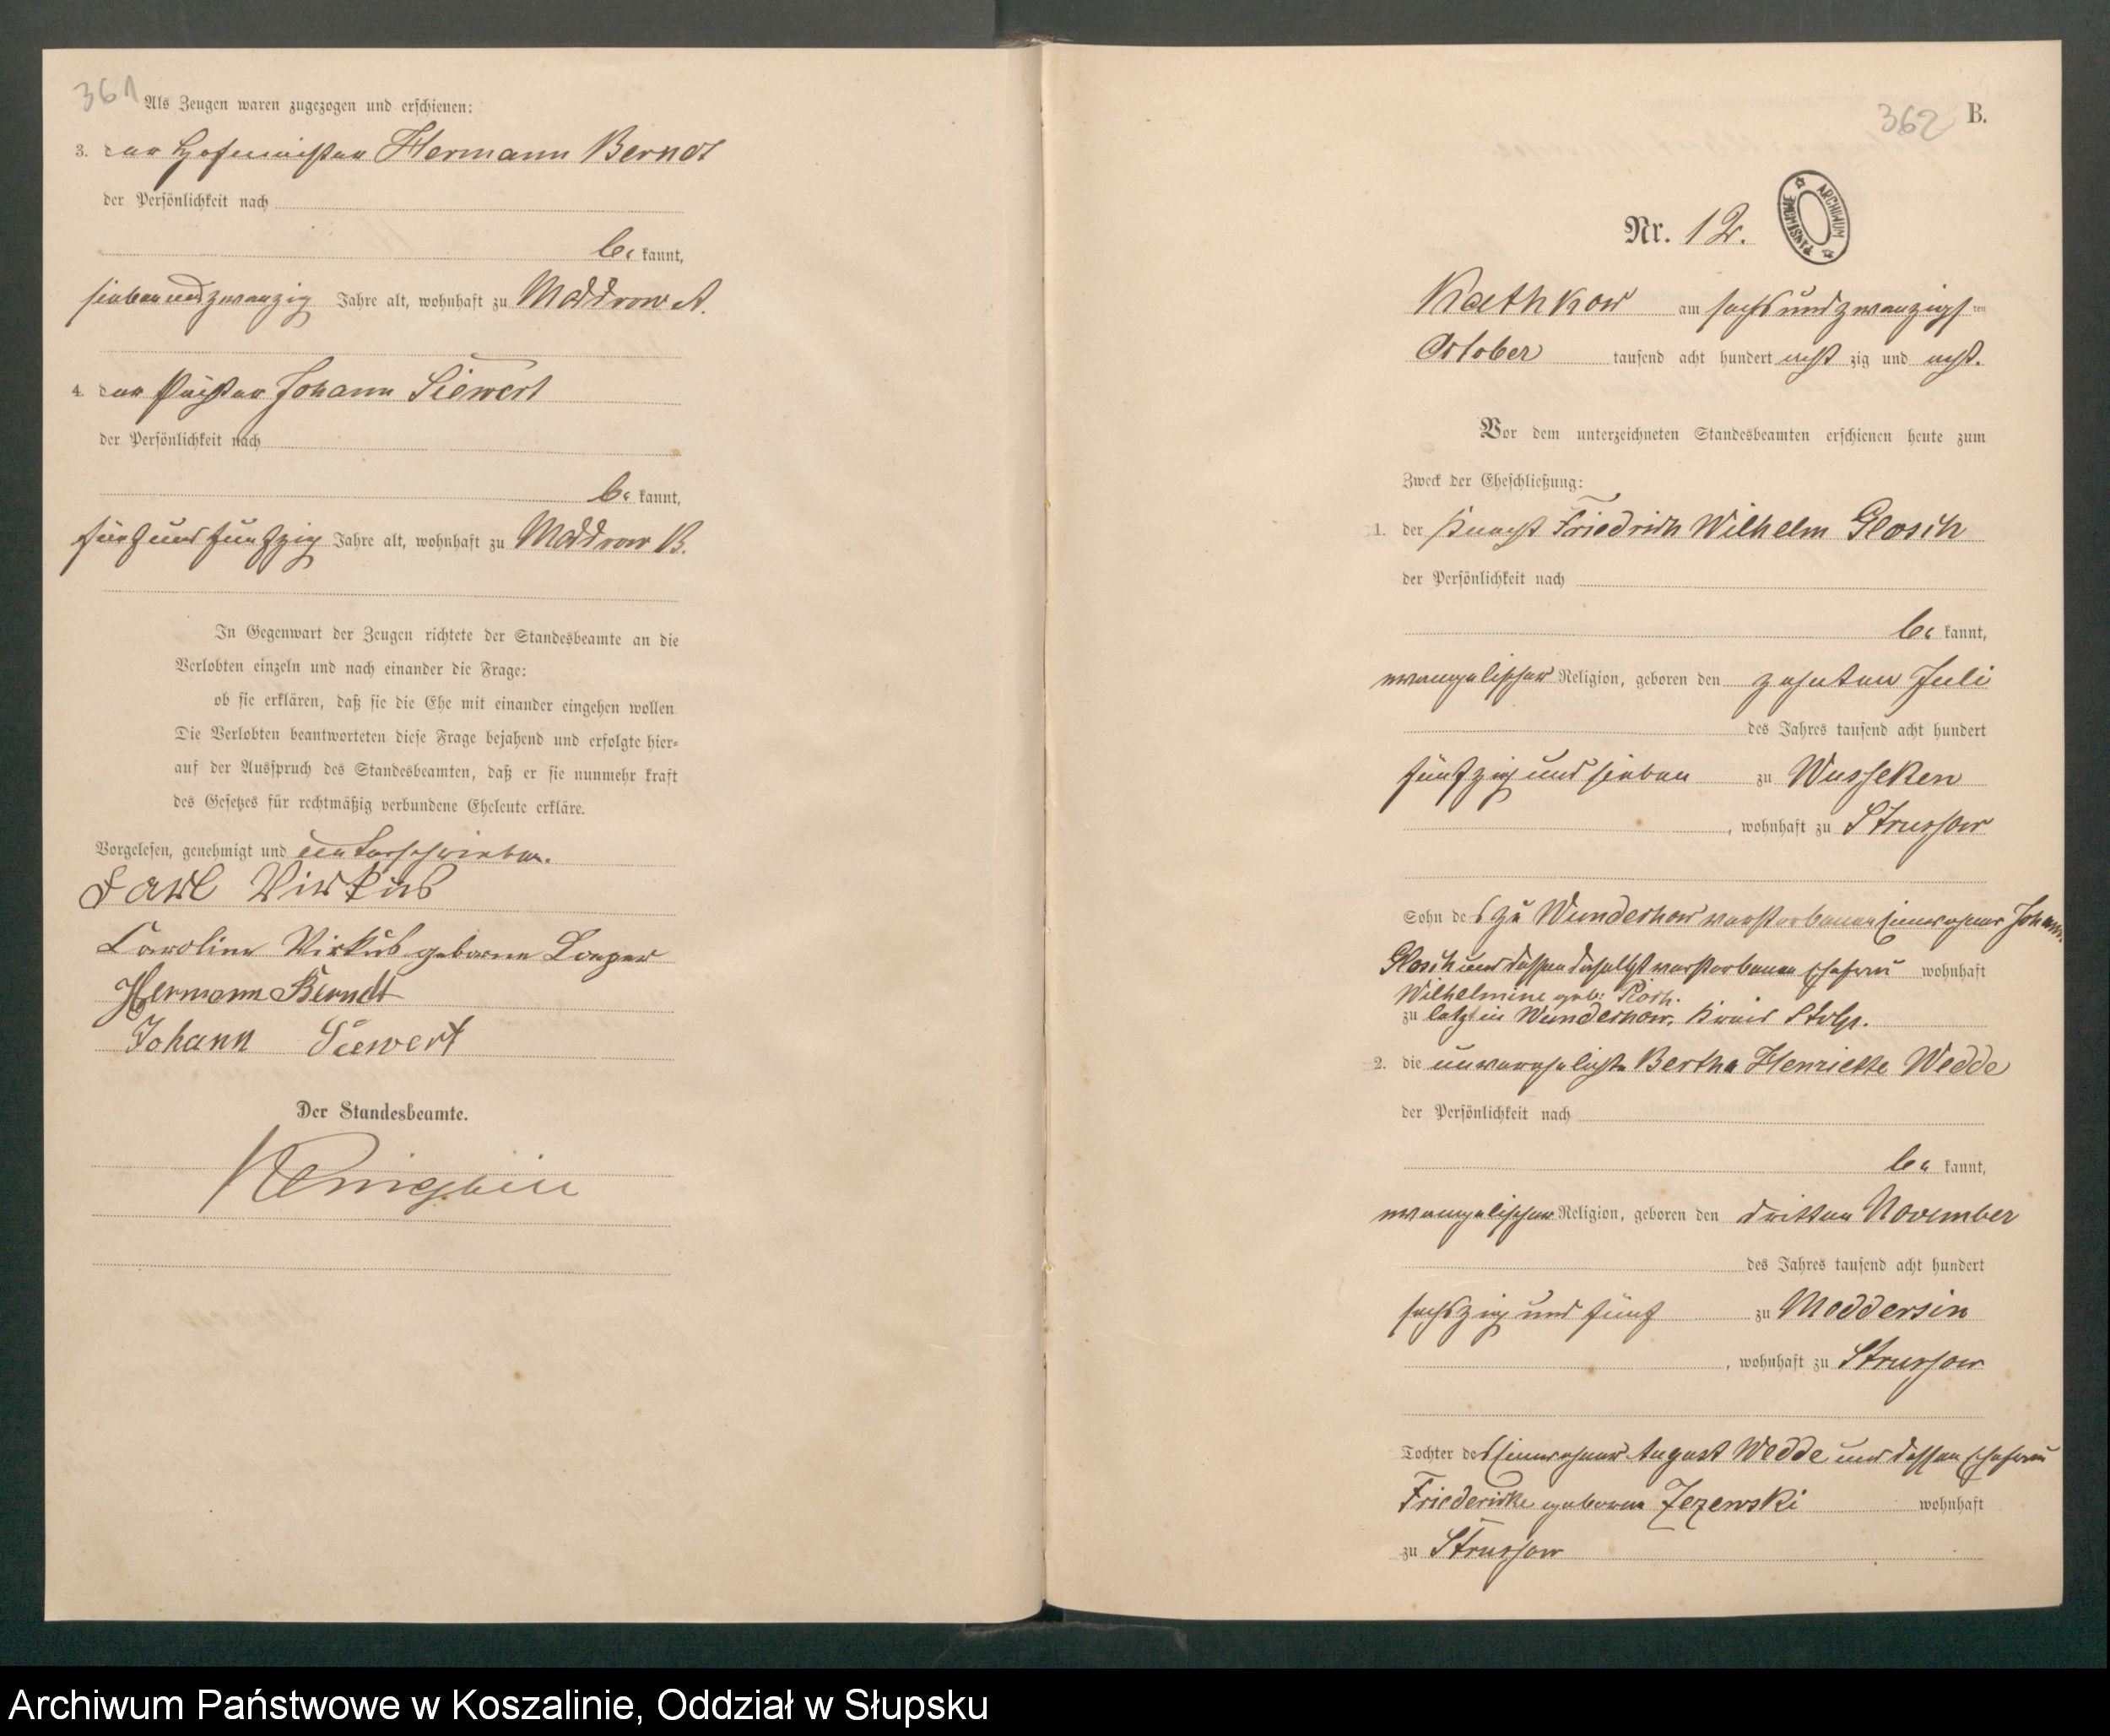 361
Als Zeugen waren zugezogen und erschienen:
3. der Hofmeister Hermann Berndt
der Persönlichkeit nach
be kannt,
siebenundzwanzig Jahre alt, wohnhaft zu Moddrow A.
4. der Johann Siewert
der Persönlichkeit nach
be kannt,
fünfundfünfzig Jahre alt, wohnhaft zu Moddrow B.
In Gegenwart der Zeugen richtete der Standesbeamte an die
Verlobten einzeln und nach einander die Frage:
ob sie erklären, daß sie die Ehe mit einander eingehen wollen
Die Verlobten beantworteten diese Frage bejahend und erfolgte hier-
auf der Ausspruch des Standesbeamten, daß er sie nunmehr kraft
des Gesetzes für rechtmäßig verbundene Eheleute erkläre.
Vorgelesen, genehmigt und unterschrieben.
Carl Virkus
Caroline Virkus geborene
Hermann Berndt
Johann Siewert
Der Standesbeamte.
362 B.
Nr. 12.
ARCHIWUM PAŃSTWOWE
Kathkow am sechsundzwanzigsten
October tausend acht hundert acht zig und acht.
Vor dem unterzeichneten Standesbeamten erschienen heute zum
Zweck der Eheschließung:
1. der Knecht Friedrich Wilhelm Glosch
der Persönlichkeit nach
be kannt,
evangelischer Religion, geboren den zehnten Juli
des Jahres tausend acht hundert
fünfzig und sieben zu Wusseken
, wohnhaft zu Strussow
Sohn des zu Wundichow verstorbenen Einwohner Johann
Glosch und dessen daselbst verstorbenen Ehefrau wohnhaft
Wilhelmine geb:
zu letzt in Wundichow, Kreis Stolp.
2. die unverehelichte Bertha Henriette Wedde
der Persönlichkeit nach
be kannt,
evangelischer Religion, geboren den dritten November
des Jahres tausend acht hundert
sechszig und fünf zu Moddersin
, wohnhaft zu Strussow
Tochter des Einwohner August Wedde und dessen Ehefrau
Friedericke geborne Jezewski wohnhaft
zu Strussow
Archiwum Państwowe w Koszalinie, Oddział w Słupsku